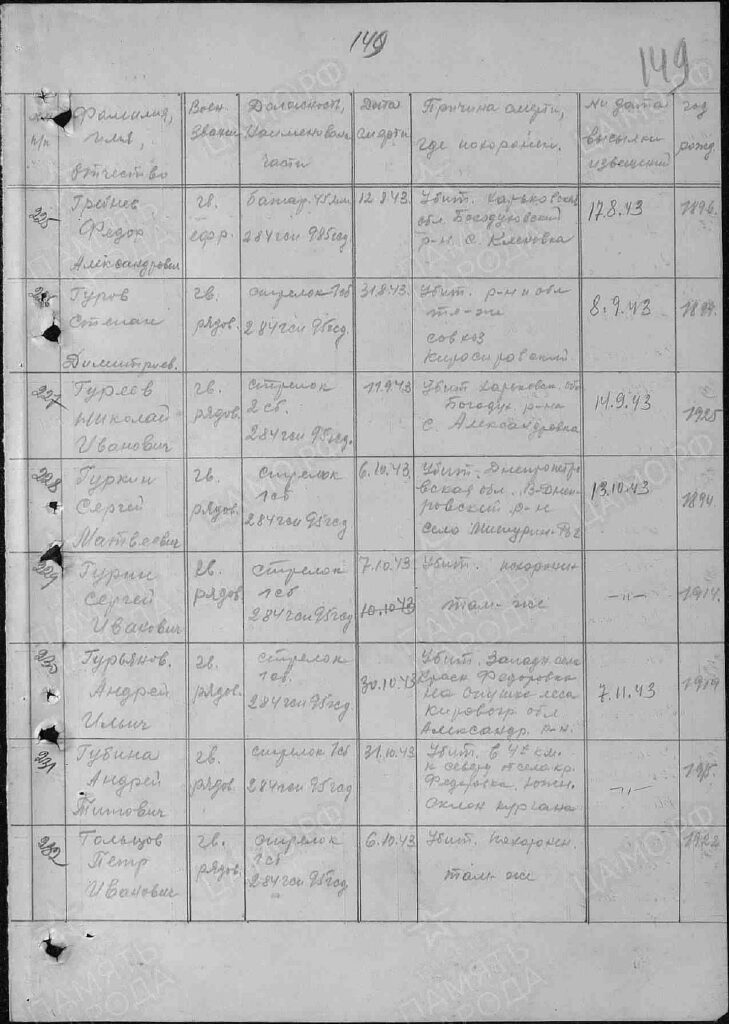 149
149
№№ п/п
Фамилия, имя, отчество
Воен. Звание
Должность, Наименован. части
Дата смерти
Причина смерти, где похоронен.
№ и дата высылки извещений
год рожд.
225
Гребнев Федор Александрович
гв. ефр.
284 гсп 95 гсд
12.8.43
Убит. Харьковская
обл. Богодуховский
р-н. с. Кленовка
17.8.43
1896.
226
Гуров Степан Димитриев.
гв. рядов.
стрелок 1 сб
284 гсп 95 гсд
31.8.43.
Убит. р-н и обл
те-же
совхоз
8.9.43
227
Гуреев Николай Иванович
гв. рядов.
стрелок 2 сб.
284 гсп 95 гсд.
11.9.43
Убит Харьковск. обл
Богодух. р-на
с. Александровка
14.9.43
1925
228
Гуркин Сергей Матвеевич
гв. рядов.
стрелок 1 сб
284 гсп 95 гсд
6.10.43.
Убит. Днепропетро
вская обл. В-Днеп
ровский р-н
село Мишурин-Рог
13.10.43
1894.
229
Гурин Сергей Иванович
гв. рядов.
стрелок 1 сб
284 гсп 95 гсд
7.10.43
10.10.43
Убит. похоронен
там-же
-"-
1914.
230
Гурьянов. Андрей Ильич
гв. рядов.
стрелок 1 сб.
284 гсп 95 гсд
30.10.43
Убит. Западн
Красн Федоровка
на опушке леса
Кировогр обл
Александр. р-н.
7.11.43
1919
231
Губина Андрей Титович
гв. рядов.
стрелок 1 сб
284 гсп 95 гсд
31.10.43
Убит. в 4х км.
к северу
Федоровка. Южн.
склон кургана
-"-
232
Гольцов Петр Иванович
гв. рядов.
стрелок 1 сб
284 гсп 95 гсд
6.10.43
Убит. Похоронен.
там-же